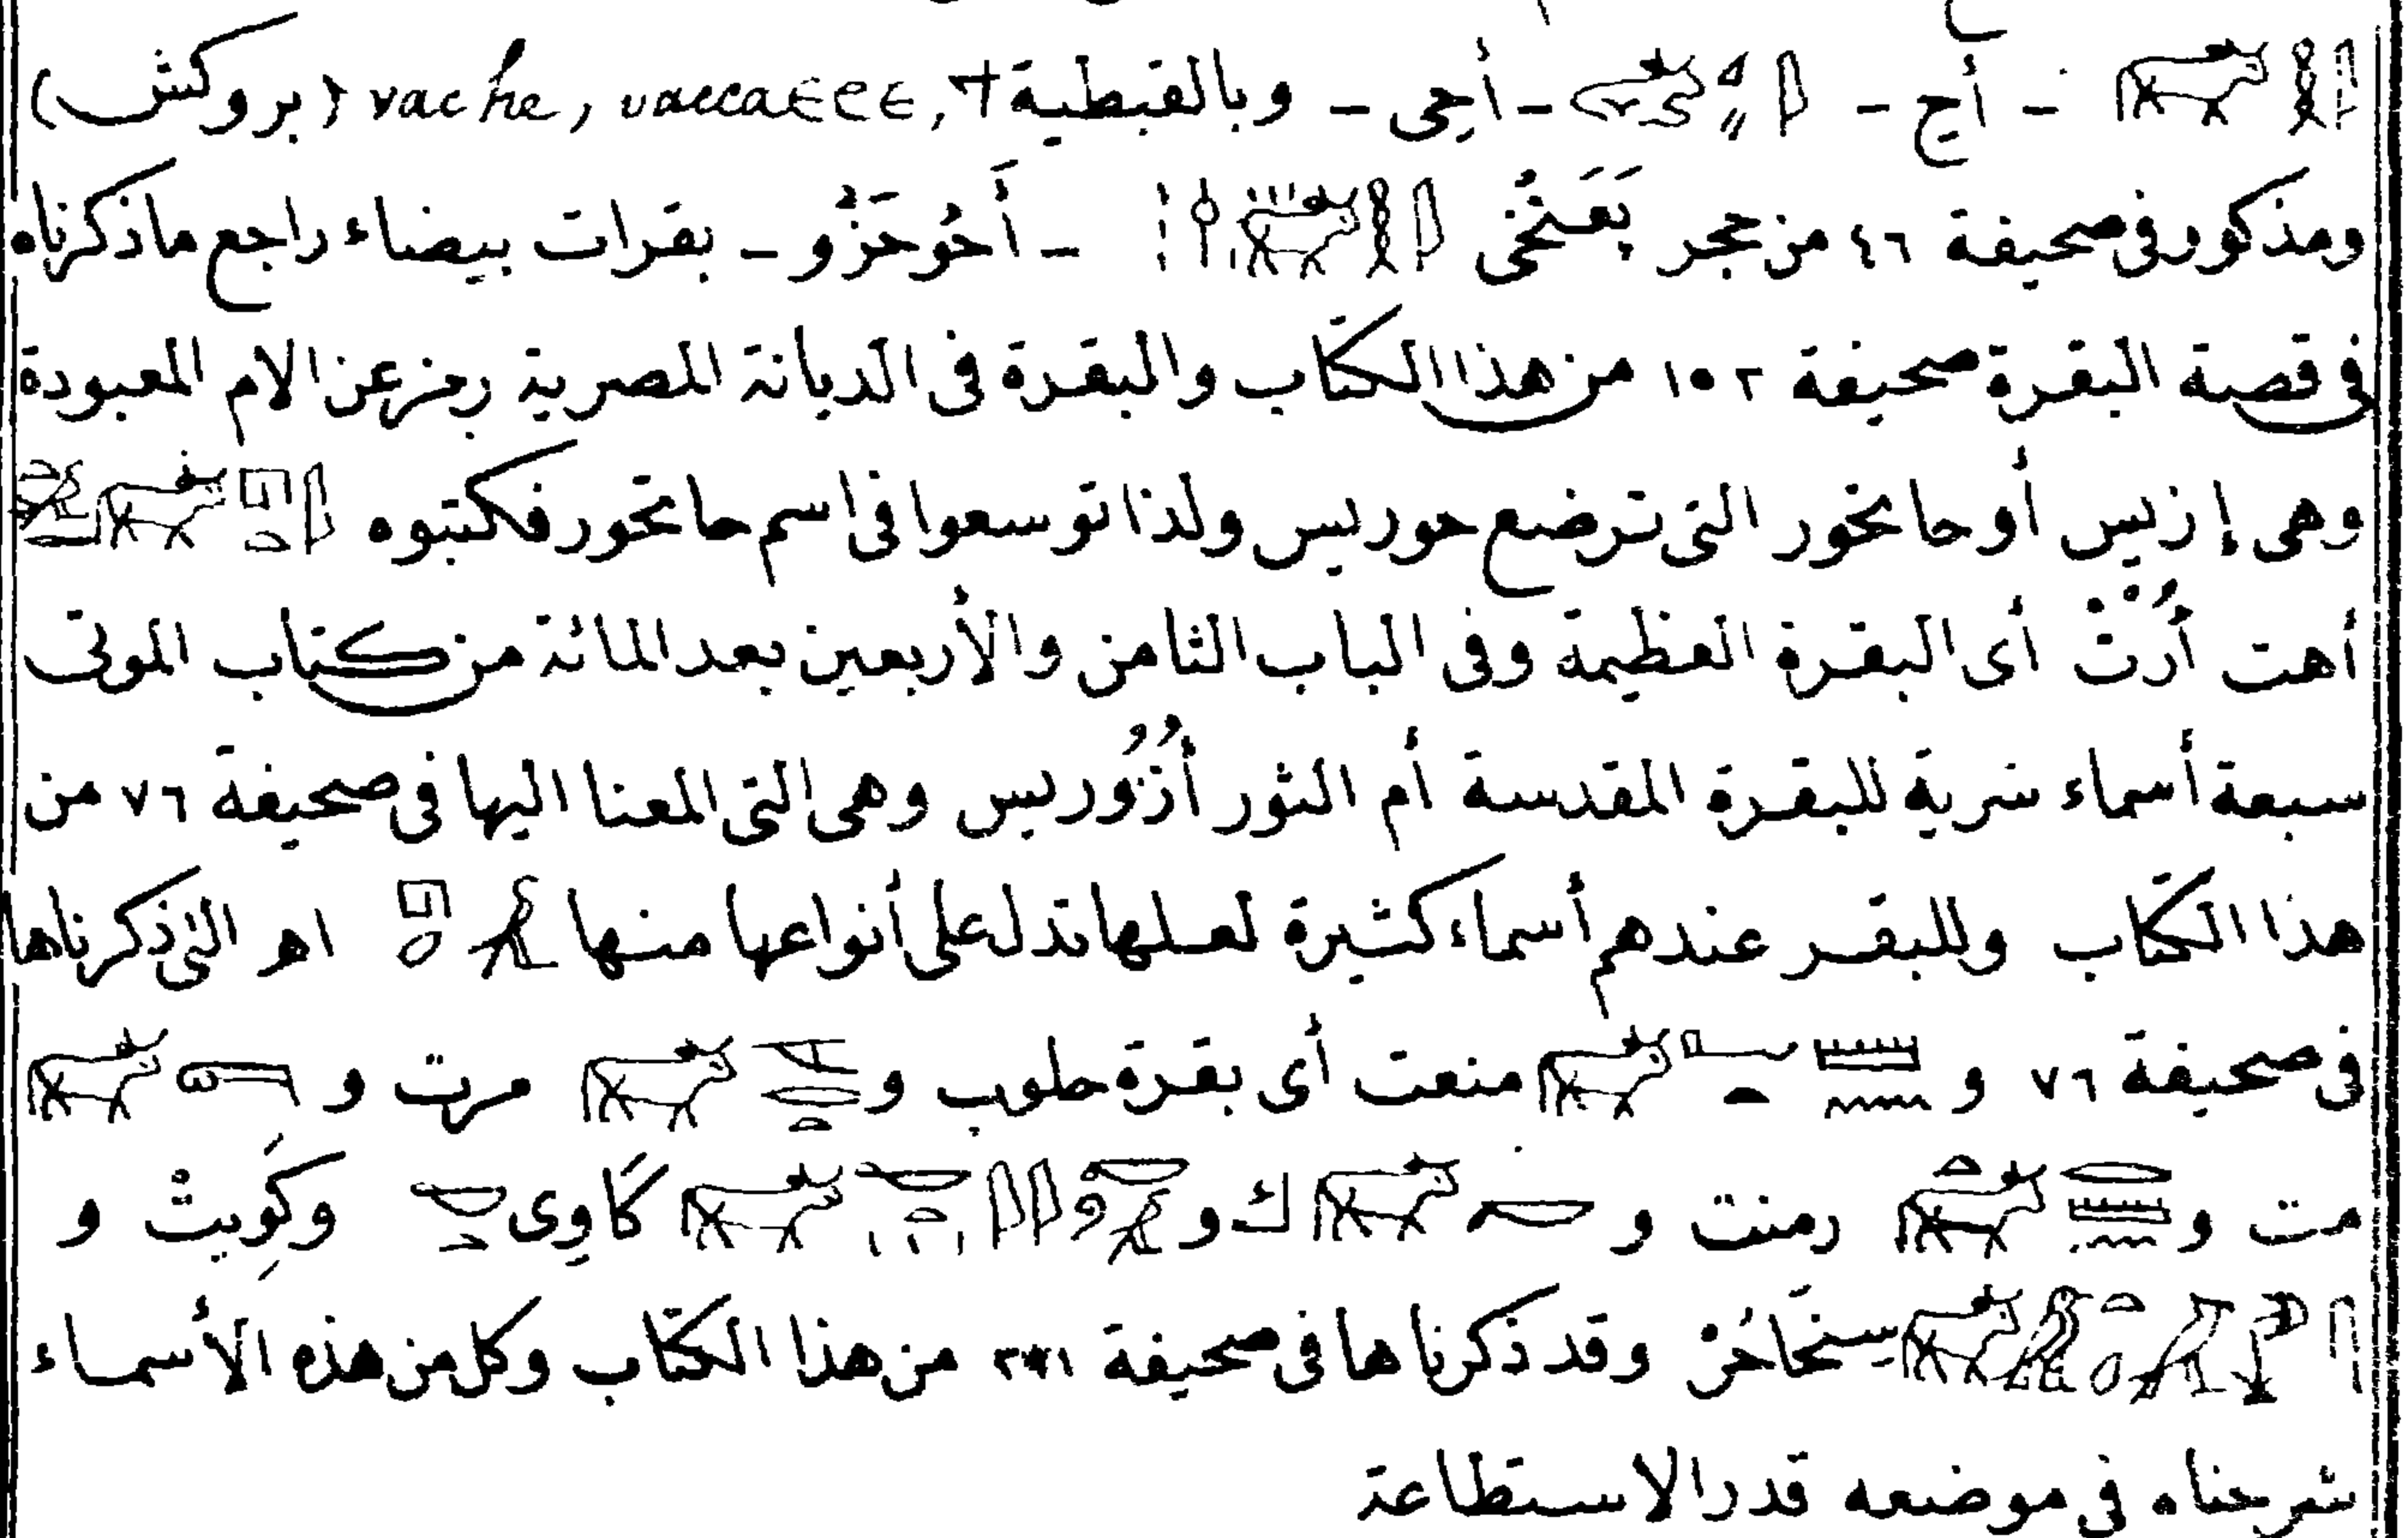 𓇋𓎛𓃒 - أح - 𓇋𓃒 - أحى - وبالقبطية ϯ, ⲉϩⲉ vache, vacca (بروكش)
ومذكور فى صحيفة ٤٦ من حجر بَعَنْخى 𓇋𓎛𓃒𓏥𓌉𓏥 - أَحُو حَزُو - بقرات بيضاء راجع ماذكرناه
فى قصة البقرة صحيفة ١٥٢ من هذا الكتاب والبقرة فى الديانة المصرية رمز عن الام المعبودة
وهى إزيس أو حاتحور التى ترضع حوريس ولذا توسعوا فى اسم حاتحور فكتبوه 𓇋𓉔𓏏𓃒
أهت أُرْتْ أى البقرة العظيمة وفى الباب الثامن والأربعين بعد المائة من كتاب الموتى
سبعة أسماء سرية للبقرة المقدسة أم الثور أُزُوريس وهى التى المعنا اليها فى صحيفة ٧٦ من
هذا الكتاب وللبقر عندهم أسماء كثيرة لعلها تدل على أنواعها منها 𓉔 اهر التى ذكرناها
فى صحيفة ٧٦ و 𓏠𓈖𓂝𓏏𓃒 منعت أى بقرة حلوب و 𓌻𓂋𓏏𓃒 مرت و 𓃒
مت و 𓂋𓏠𓈖𓏏𓃒 رمنت و 𓎡𓃒 ك و 𓎡𓅱𓇋𓇋𓎡𓏏𓏥𓃒 كَاوِى 𓎡𓏏 وكَوِيتْ و
𓋴𓆼𓄿𓏏𓃒 سخَاحُرْ وقد ذكرناها فى صحيفة ٢٧١ من هذا الكتاب وكل من هذه الأسماء
شرحناه فى موضعه قدر الاستطاعة